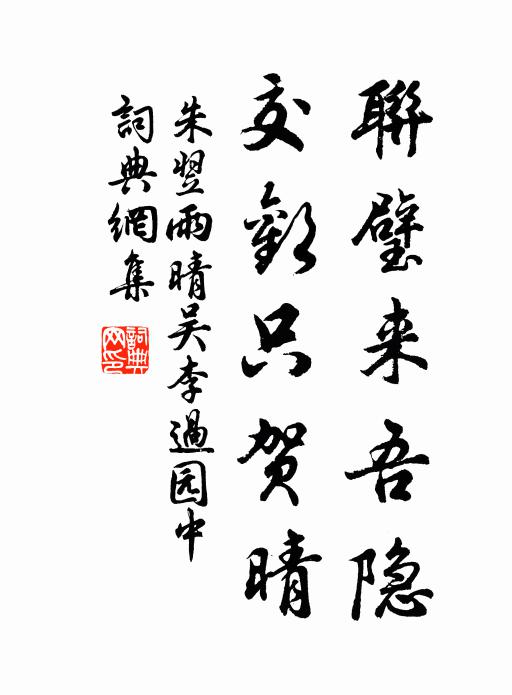 聯璧来吾隐
交歡只贺晴
朱翌雨晴吴李過园中
詞典網集
詞典
网印